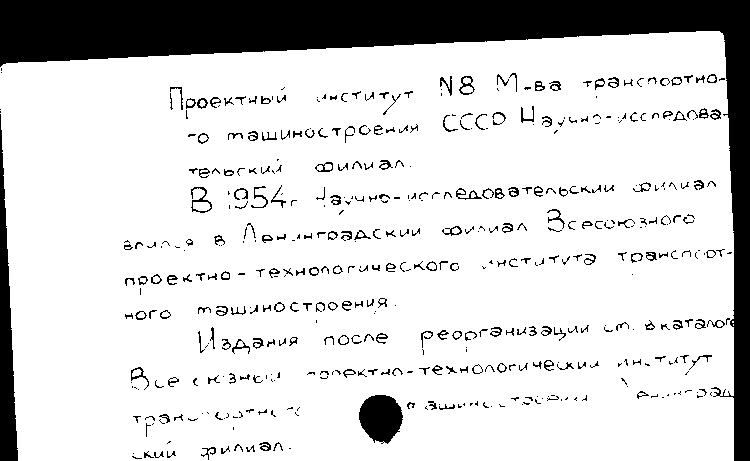 Проектный институт N8 М-ва транспортно-
го машиностроения СССР Научно-исследова-
тельский филиал.
В 1954г Научно-исследовательский филиал
влился в Ленинградский филиал Всесоюзного
проектно-технологического института транспорт-
ного машиностроения.
Издания после реорганизации см. в каталоге
Всесоюзный проектно-технологический институт
транспортного машиностроения Ленинград
ский филиал.